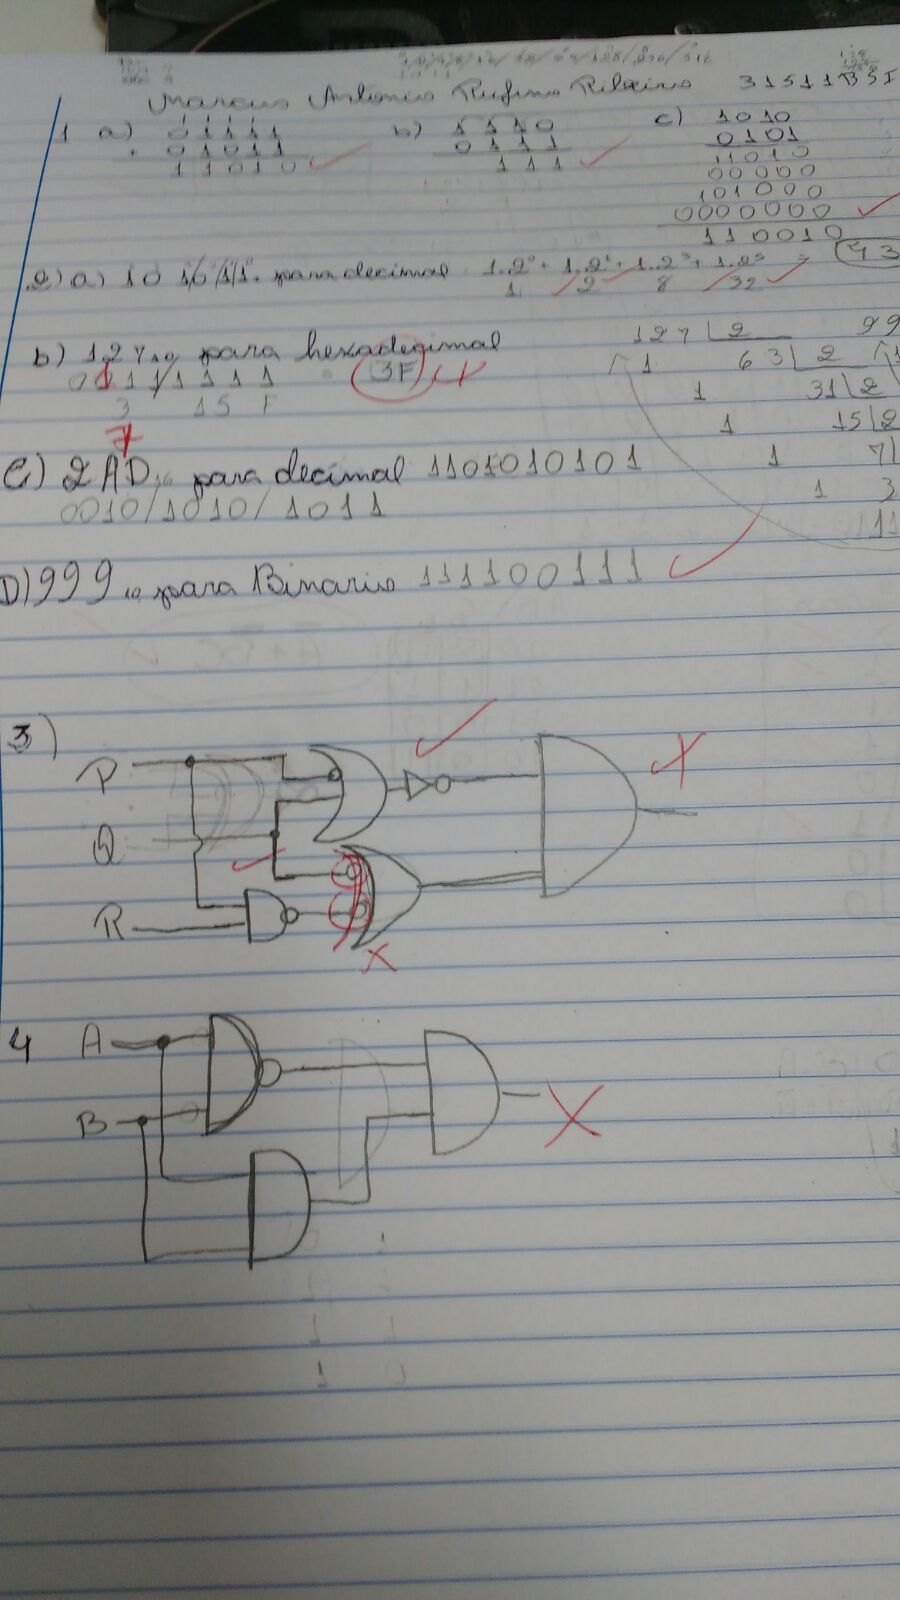 Marcus Antonio Rufino Ribeiro 31511BSI
1 a) 01111 b) 1110 c) 1010
+ 01011 0111 0101
11010 111 11010
00000
101000
0000000
110010
2) a) 101011 para decimal 1.2⁰ + 1.2¹ + 1.2³ + 1.2⁵ = 43
1 2 8 32
b) 127₁₀ para hexadecimal 127 | 2 99
0111/1111 = 3F 1 63 | 2
3 15 F 1 31 | 2
7 1 15 | 2
C) 2AD₁₆ para decimal 1101010101 1 7
0010/1010/1011 1 3
11
D) 999₁₀ para Binario 111100111
3)
P
Q
R
4 A
B